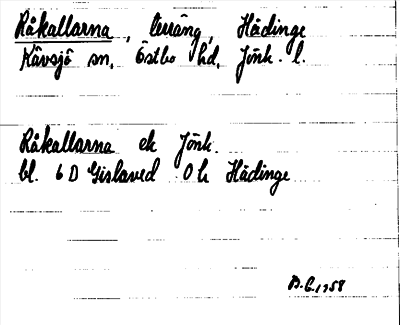 Råkallarna, terräng, Hädinge
Kävsjö sn, Östbo hd, Jönk. l.
Råkallarna ek Jönk.
bl. 6 D Gislaved 0 h Hädinge
1958